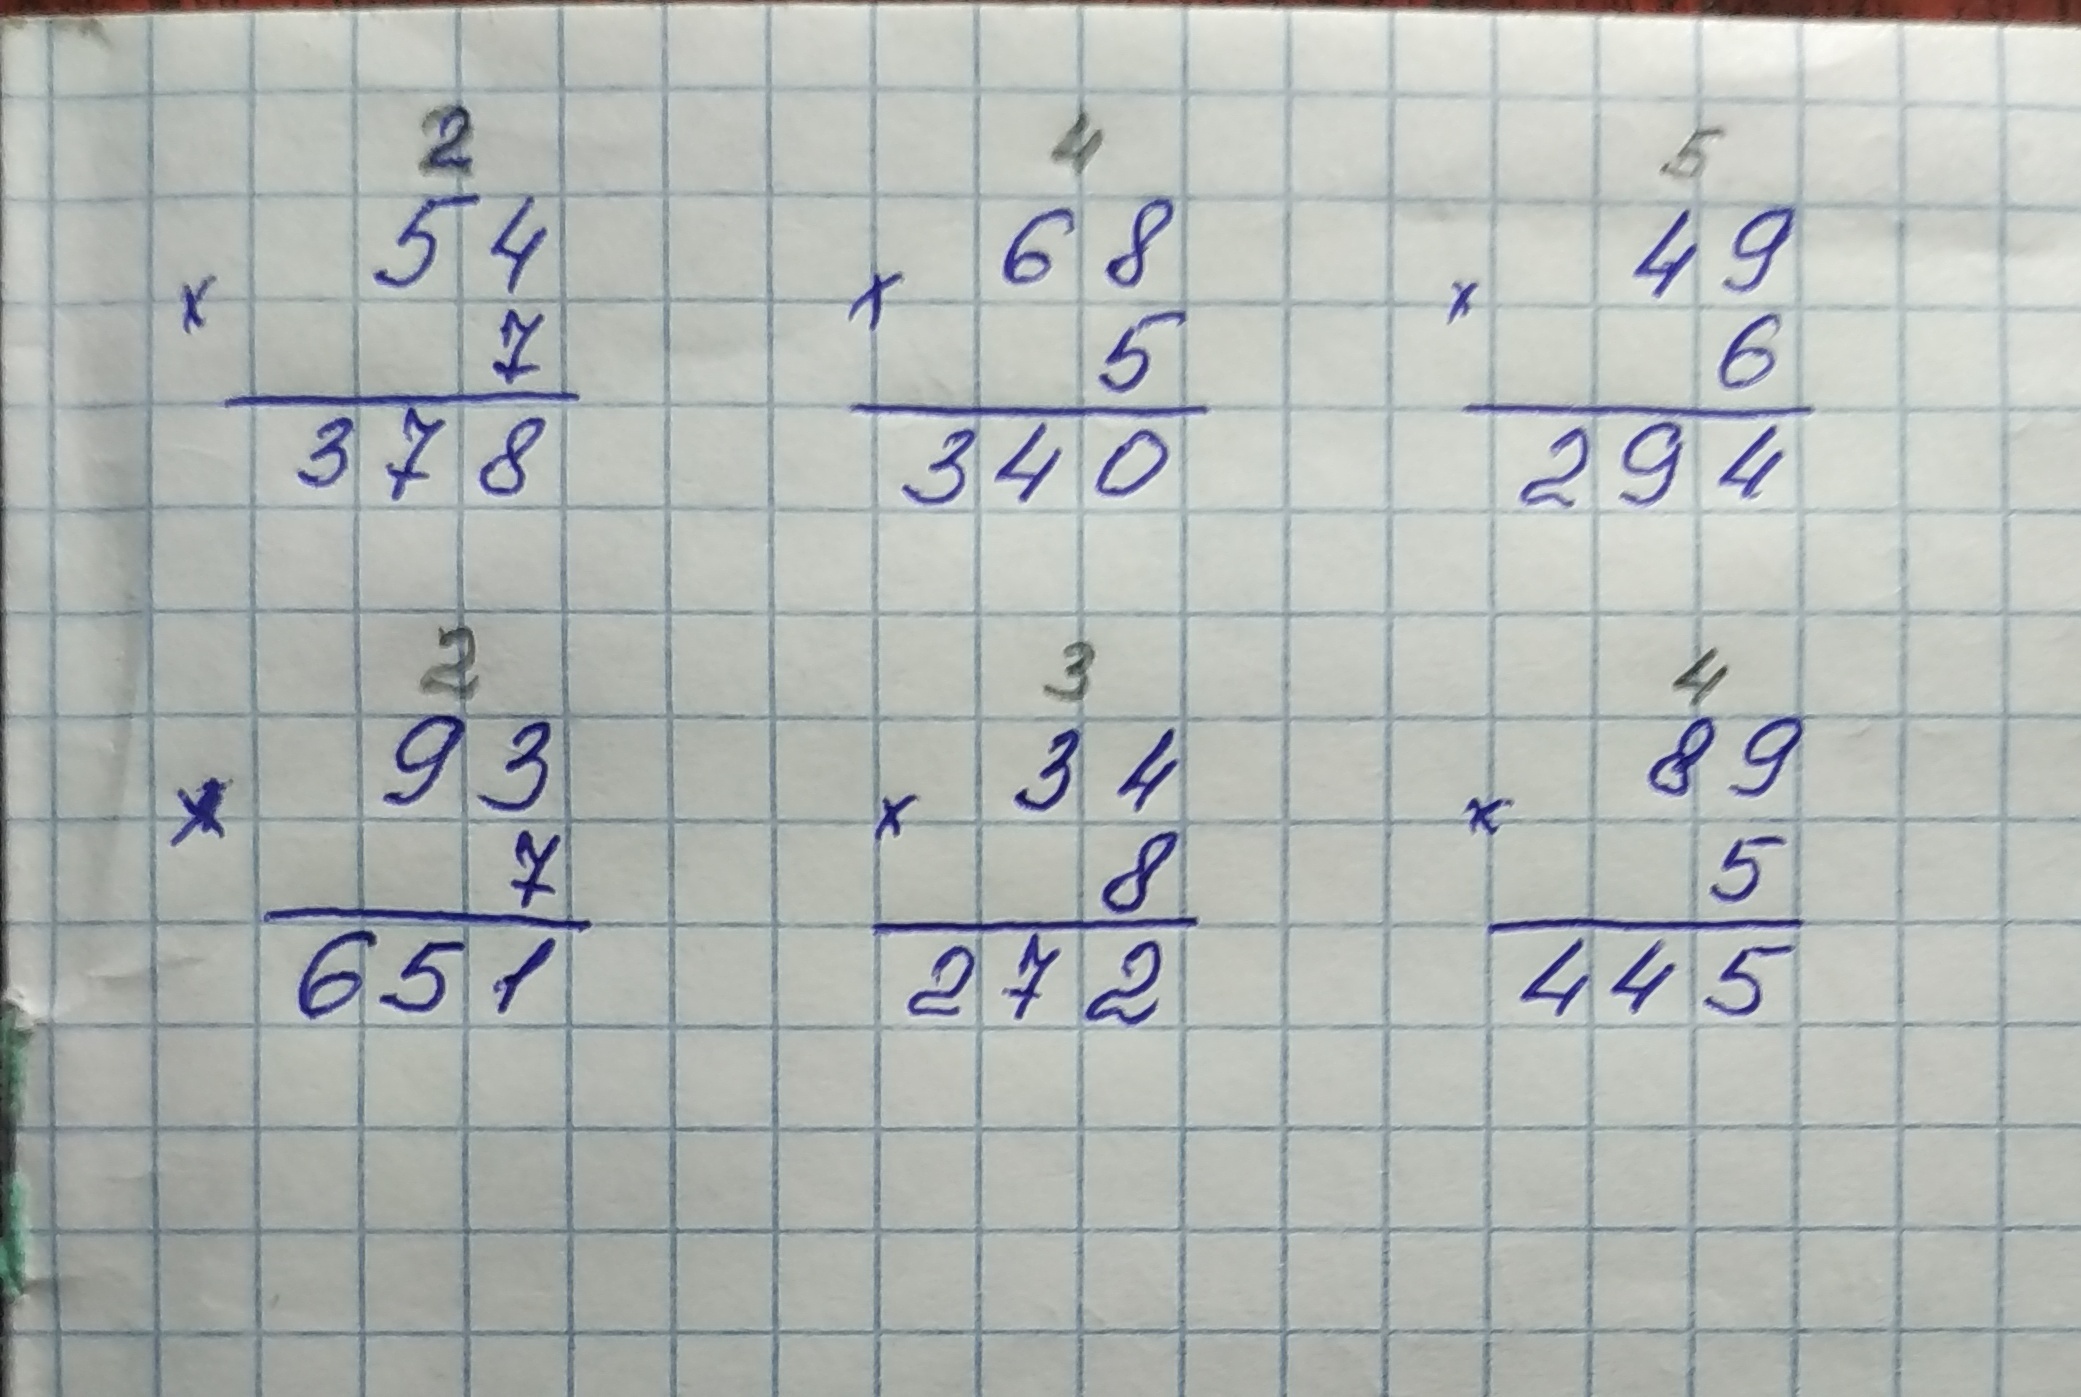 2 4 5
54 68 49
x x x
7 5 6
378 340 294
2 3 4
93 34 89
x x x
7 8 5
651 272 445